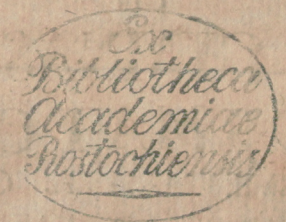 Ex
Bibliotheca
Academiae
Rostochiensis